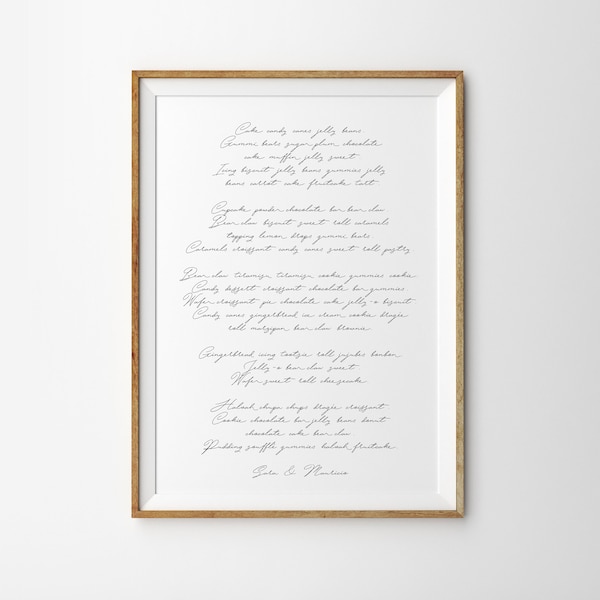 Cake candy canes jelly beans
Gummi bears sugar plum chocolate
cake muffin jelly sweet
Icing biscuit jelly beans gummies jelly
beans carrot cake fruitcake tart
Cupcake powder chocolate bar bear claw
Bear claw biscuit sweet roll caramels
topping lemon drops gummi bears
Caramels croissant candy canes sweet roll pastry
Bear claw tiramisu tiramisu cookie gummies cookie
Candy dessert croissant chocolate bar gummies
Wafer croissant pie chocolate cake jelly-o biscuit
Candy canes gingerbread ice cream cookie dragée
roll marzipan bear claw brownie
Gingerbread icing tootsie roll jujubes bonbon
Jelly-o bear claw sweet
Wafer sweet roll cheesecake
Halvah chupa chups dragée croissant
Cookie chocolate bar jelly beans donut
chocolate cake bear claw
Pudding soufflé gummies halvah fruitcake
Sara & Mauricio